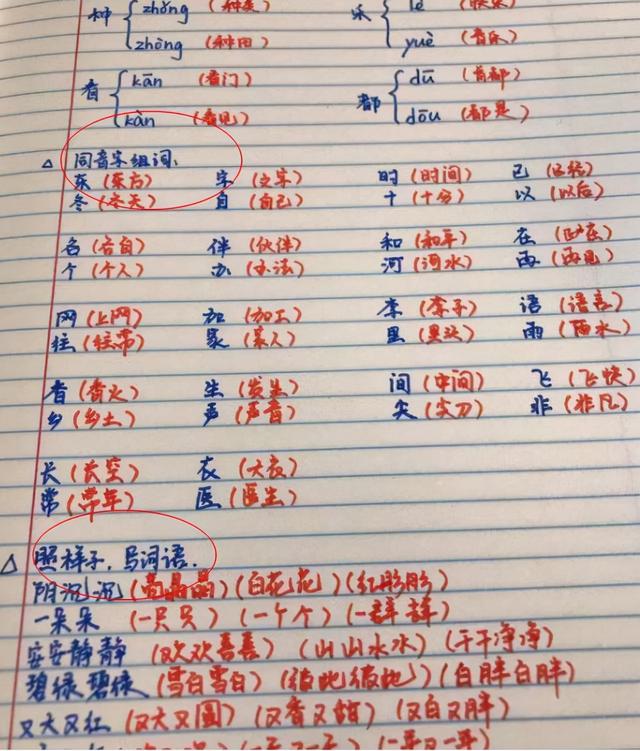 种 zhǒng
zhòng (种田)
乐 lè
yuè (音乐)
看 kān (看门)
kàn (看见)
都 dū (首都)
dōu (都是)
△ 同音字组词、
东 (东方) 字 (文字) 时 (时间) 已 (已经)
冬 (冬天) 自 (自己) 十 (十分) 以 (以后)
各 (各自) 伴 (伙伴) 和 (和平) 在
个 (个人) 办 (办法) 河 (河水) 再 (再见)
网 (上网) 加 (加工) 李 (李子) 语
往 (往常) 家 (家人) 里 (里头) 雨 (雨水)
香 (香火) 生 (发生) 间 (中间) 飞 (飞快)
乡 (乡土) 声 (声音) 尖 (尖刀) 非 (非凡)
长 (长空) 衣 (大衣)
常 (常年) 医 (医生)
△ 照样子, 写词语.
阴沉沉 (亮晶晶) (白花花) (红彤彤)
一朵朵 (一只只) (一个个) (一群群)
安安静静 (欢欢喜喜) (山山水水) (干干净净)
碧绿碧绿 (雪白雪白) (彼此彼此) (白胖白胖)
又大又红 (又大又圆) (又香又甜) (又白又胖)